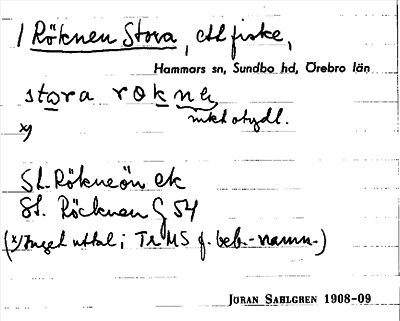 1 Röknen Stora, ett fiske,
Hammars sn, Sundbo hd, Örebro län
stora rokne
mkt otydl.
x)
St. Rökneön ek
St. Röcknen G 54
(x) Inget uttal i TrMS f. beb.-namn.)
JÖRAN SAHLGREN 1908-09